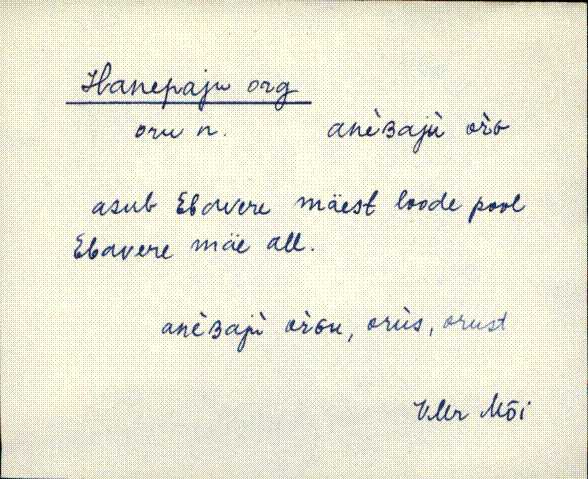 Hanepaju org
oru n. anèʙajù òrɢ
asub Ebavere mäest loode pool
Ebavere mäe all.
anèʙajù òrɢu, orùs, orust
VMr Mõi